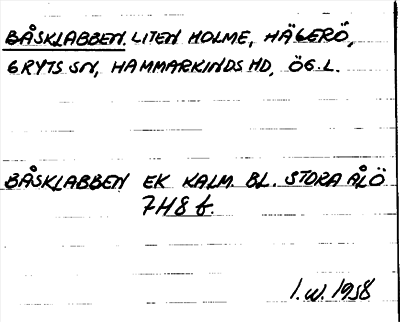 BÅSKLABBEN. LITEN HOLME, HÄGERÖ,
GRYTS SN, HAMMARKINDS HD, ÖG.L.
BÅSKLABBEN EK KALM. BL. STORA ÅLÖ
7H8 f.
I.W. 1958